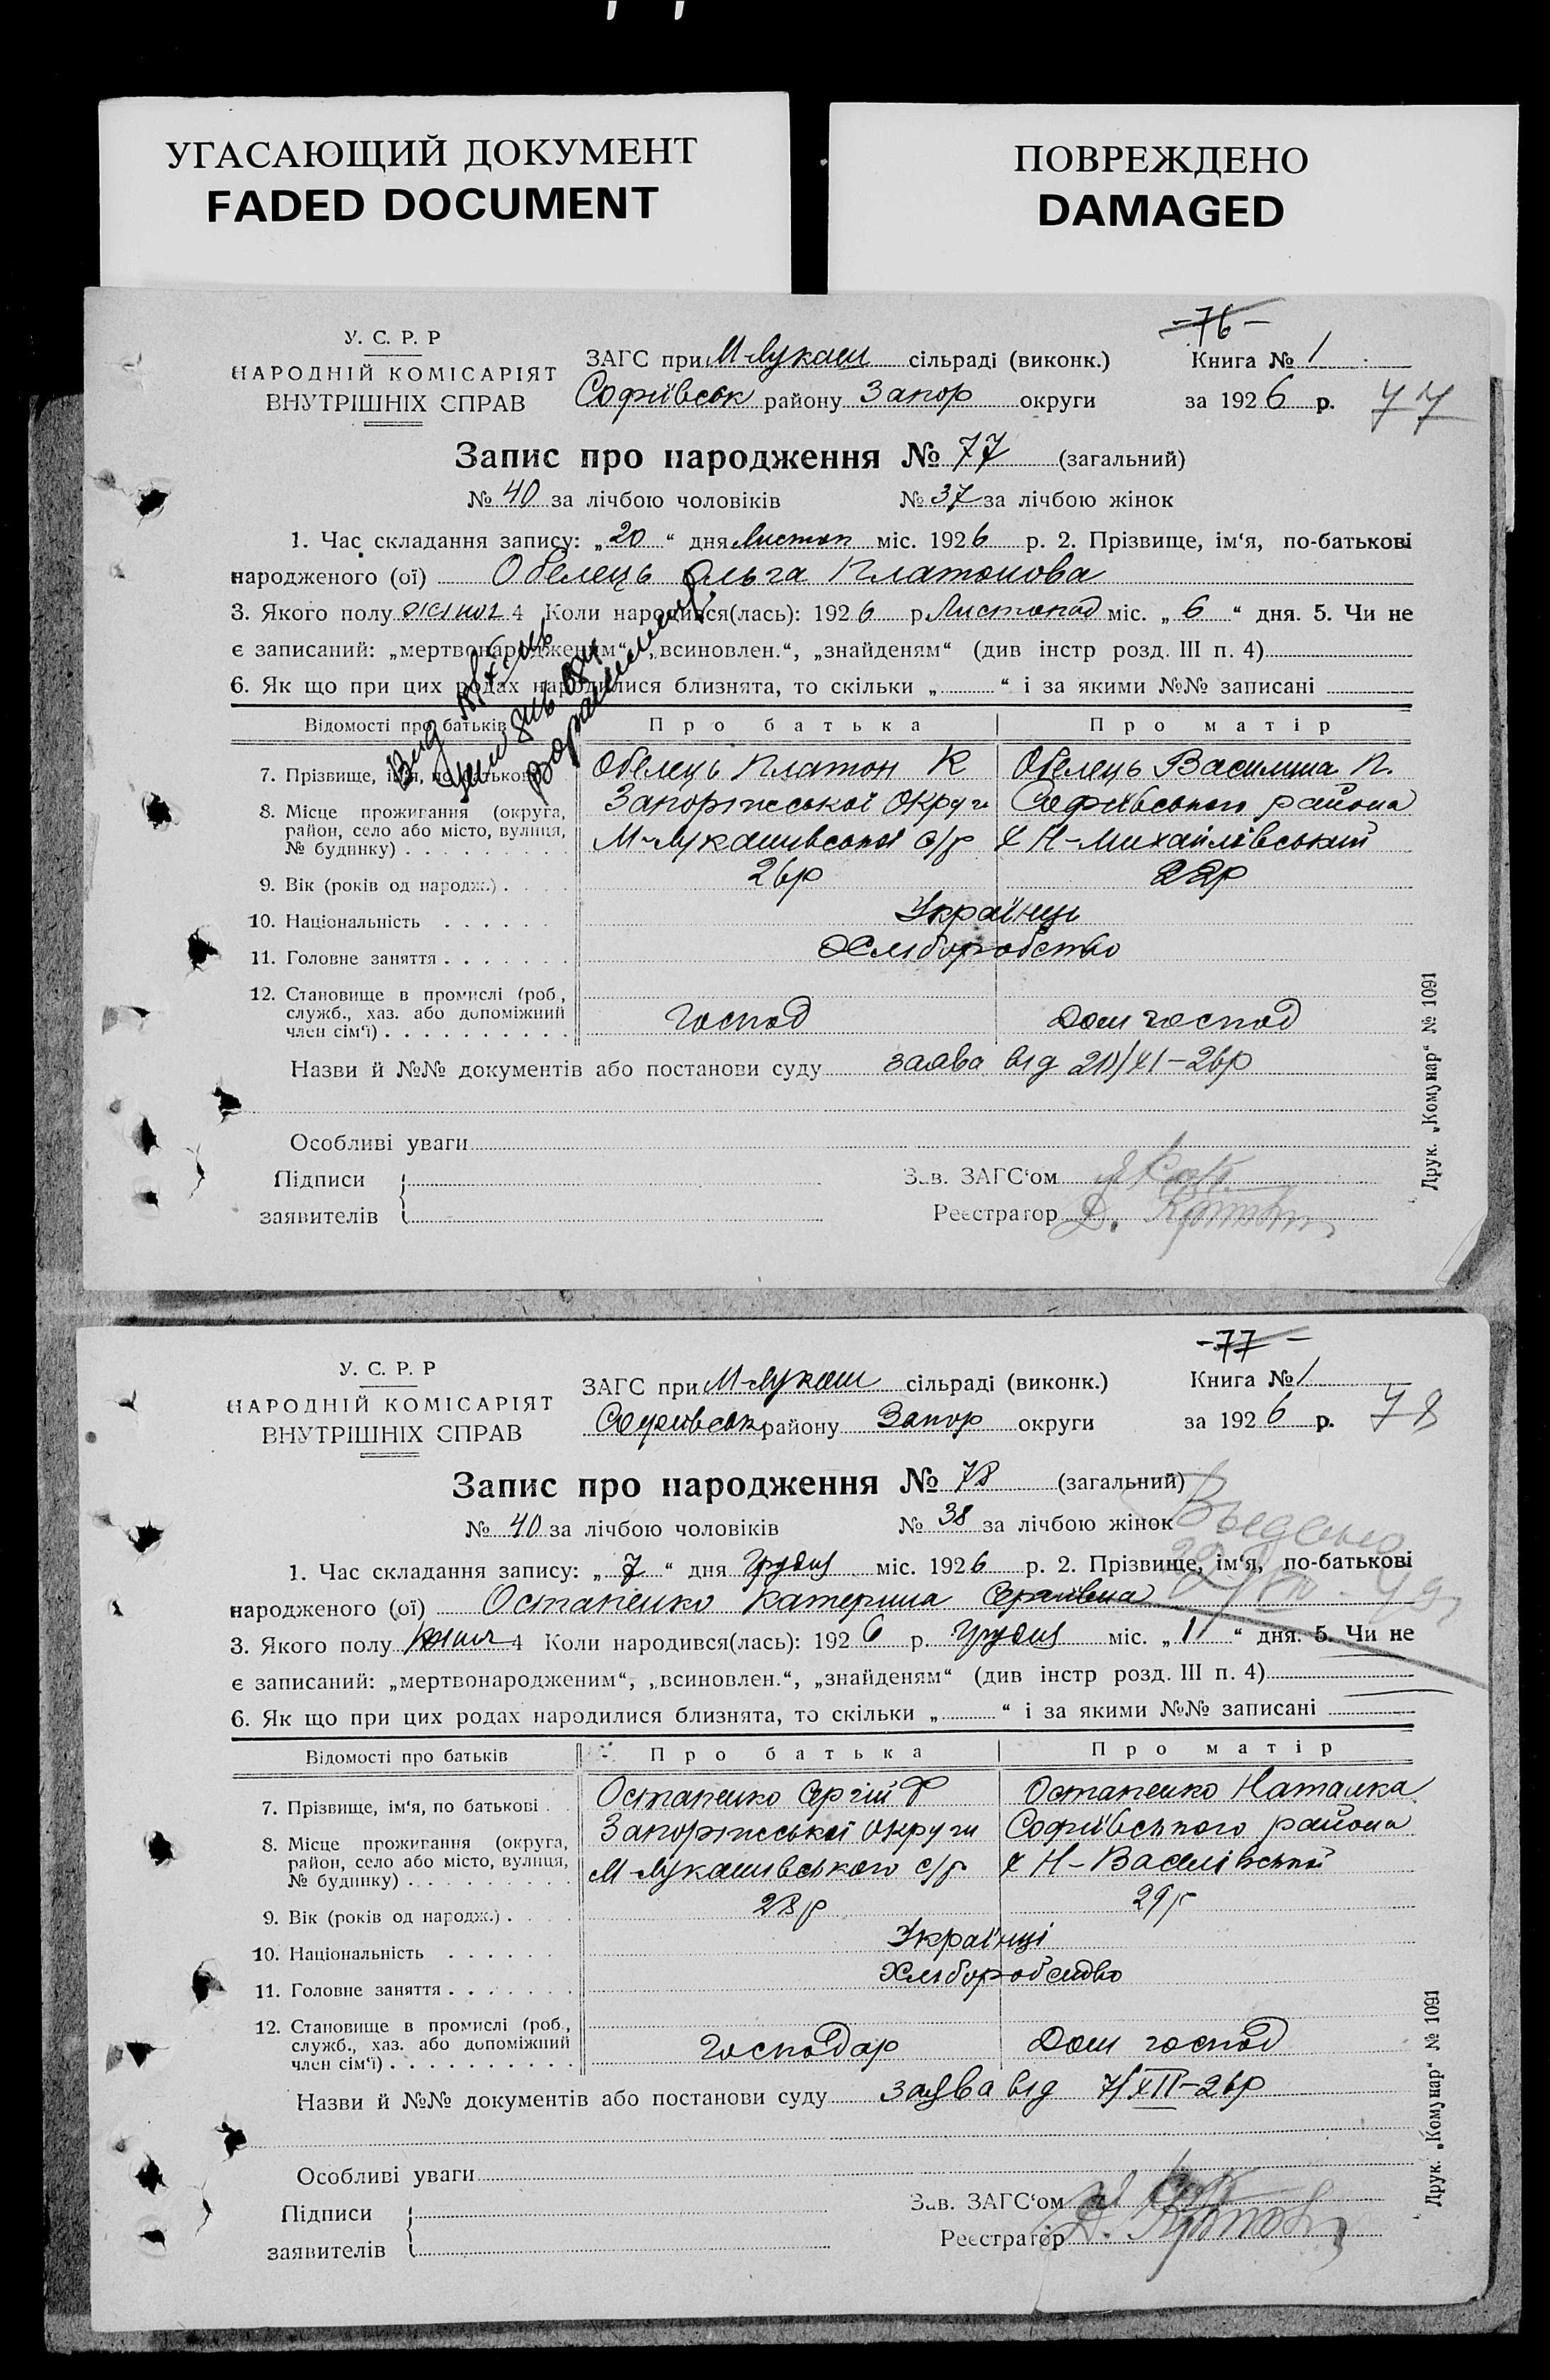 УГАСАЮЩИЙ ДОКУМЕНТ
FADED DOCUMENT
ПОВРЕЖДЕНО
DAMAGED
-76-
У. С. Р. Р
НАРОДНІЙ КОМІСАРІЯТ
ВНУТРІШНІХ СПРАВ
ЗАГС при М-Лукаш сільраді (виконк.)
Софіївськ району Запор округи
Книга № 1
за 1926 р.
77
Запис про народження № 77 (загальний)
№ 40 за лічбою чоловіків № 37 за лічбою жінок
1. Час складання запису: „20“ дня Листоп міс. 1926 р. 2. Прізвище, ім‘я, по-батькові
народженого (ої) Обелець Ольга Платонова
3. Якого полу жіноч 4 Коли народився(лась): 1926 р. Листопад міс. „6“ дня. 5. Чи не
є записаний: „мертвонародженим“, „всиновлен.“, „знайденям“ (див інстр розд. III п. 4)
6. Як що при цих родах народилися близнята, то скільки „ “ і за якими №№ записані
Відомості про батьків Про батька Про матір
7. Прізвище, ім‘я, по батькові Обелець Платон К Обелець Василина П.
8. Місце прожигання (округа, Запоріжської Округи Софіївського района
район, село або місто, вулиця, М-Лукашівської с/р х Н-Михайлівський
№ будинку)
9. Вік (років од народж.) 26р 22р
10. Національність Українці
11. Головне заняття Хліборобство
12. Становище в промислі (роб.,
служб., хаз. або допоміжний
член сім‘ї) Господ Дом господ
Назви й №№ документів або постанови суду заява від 20/XI-26р
Особливі уваги
Підписи
заявителів
Зав. ЗАГС‘ом
Реєстратор Д.
Друк. „Комунар“ № 1091
-77-
У. С. Р. Р
НАРОДНІЙ КОМІСАРІЯТ
ВНУТРІШНІХ СПРАВ
ЗАГС при М-Лукаш сільраді (виконк.)
Софіївськ району Запор округи
Книга № 1
за 1926 р.
78
Запис про народження № 78 (загальний)
№ 40 за лічбою чоловіків № 38 за лічбою жінок
1. Час складання запису: „7“ дня Грудня міс. 1926 р. 2. Прізвище, ім‘я, по-батькові
народженого (ої) Остапенко Катерина Сергіївна
3. Якого полу жіноч 4 Коли народився(лась): 1926 р. Грудня міс. „1“ дня. 5. Чи не
є записаний: „мертвонародженим“, „всиновлен.“, „знайденям“ (див інстр розд. III п. 4)
6. Як що при цих родах народилися близнята, то скільки „ “ і за якими №№ записані
Відомості про батьків Про батька Про матір
7. Прізвище, ім‘я, по батькові Остапенко Сергій Ф Остапенко Наталка
8. Місце прожигання (округа, Запоріжської Округи Софіївського района
район, село або місто, вулиця, М-Лукашівського с/р х Н-Василівський
№ будинку)
9. Вік (років од народж.) 28р 29р
10. Національність Українці
11. Головне заняття Хліборобство
12. Становище в промислі (роб.,
служб., хаз. або допоміжний
член сім‘ї) Господар Дом господ
Назви й №№ документів або постанови суду заява від 7/XII-26р
Особливі уваги
Підписи
заявителів
Зав. ЗАГС‘ом
Реєстратор Д.
Друк. „Комунар“ № 1091